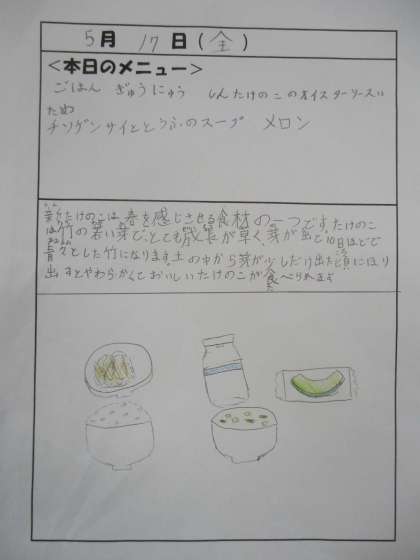 5月 17日(金)
<本日のメニュー>
ごはん ぎゅうにゅう しんたけのこのオイスターソースい
ため
チンゲンサイととうふのスープ メロン
新たけのこは、春を感じさせる食材の一つです。たけのこ
は竹の若い芽で、とても成長が早く、芽が出て10日ほどで
青々とした竹になります。土の中から芽が少しだけ出た頃にほり
出すとやわらかくておいしいたけのこが食べられます